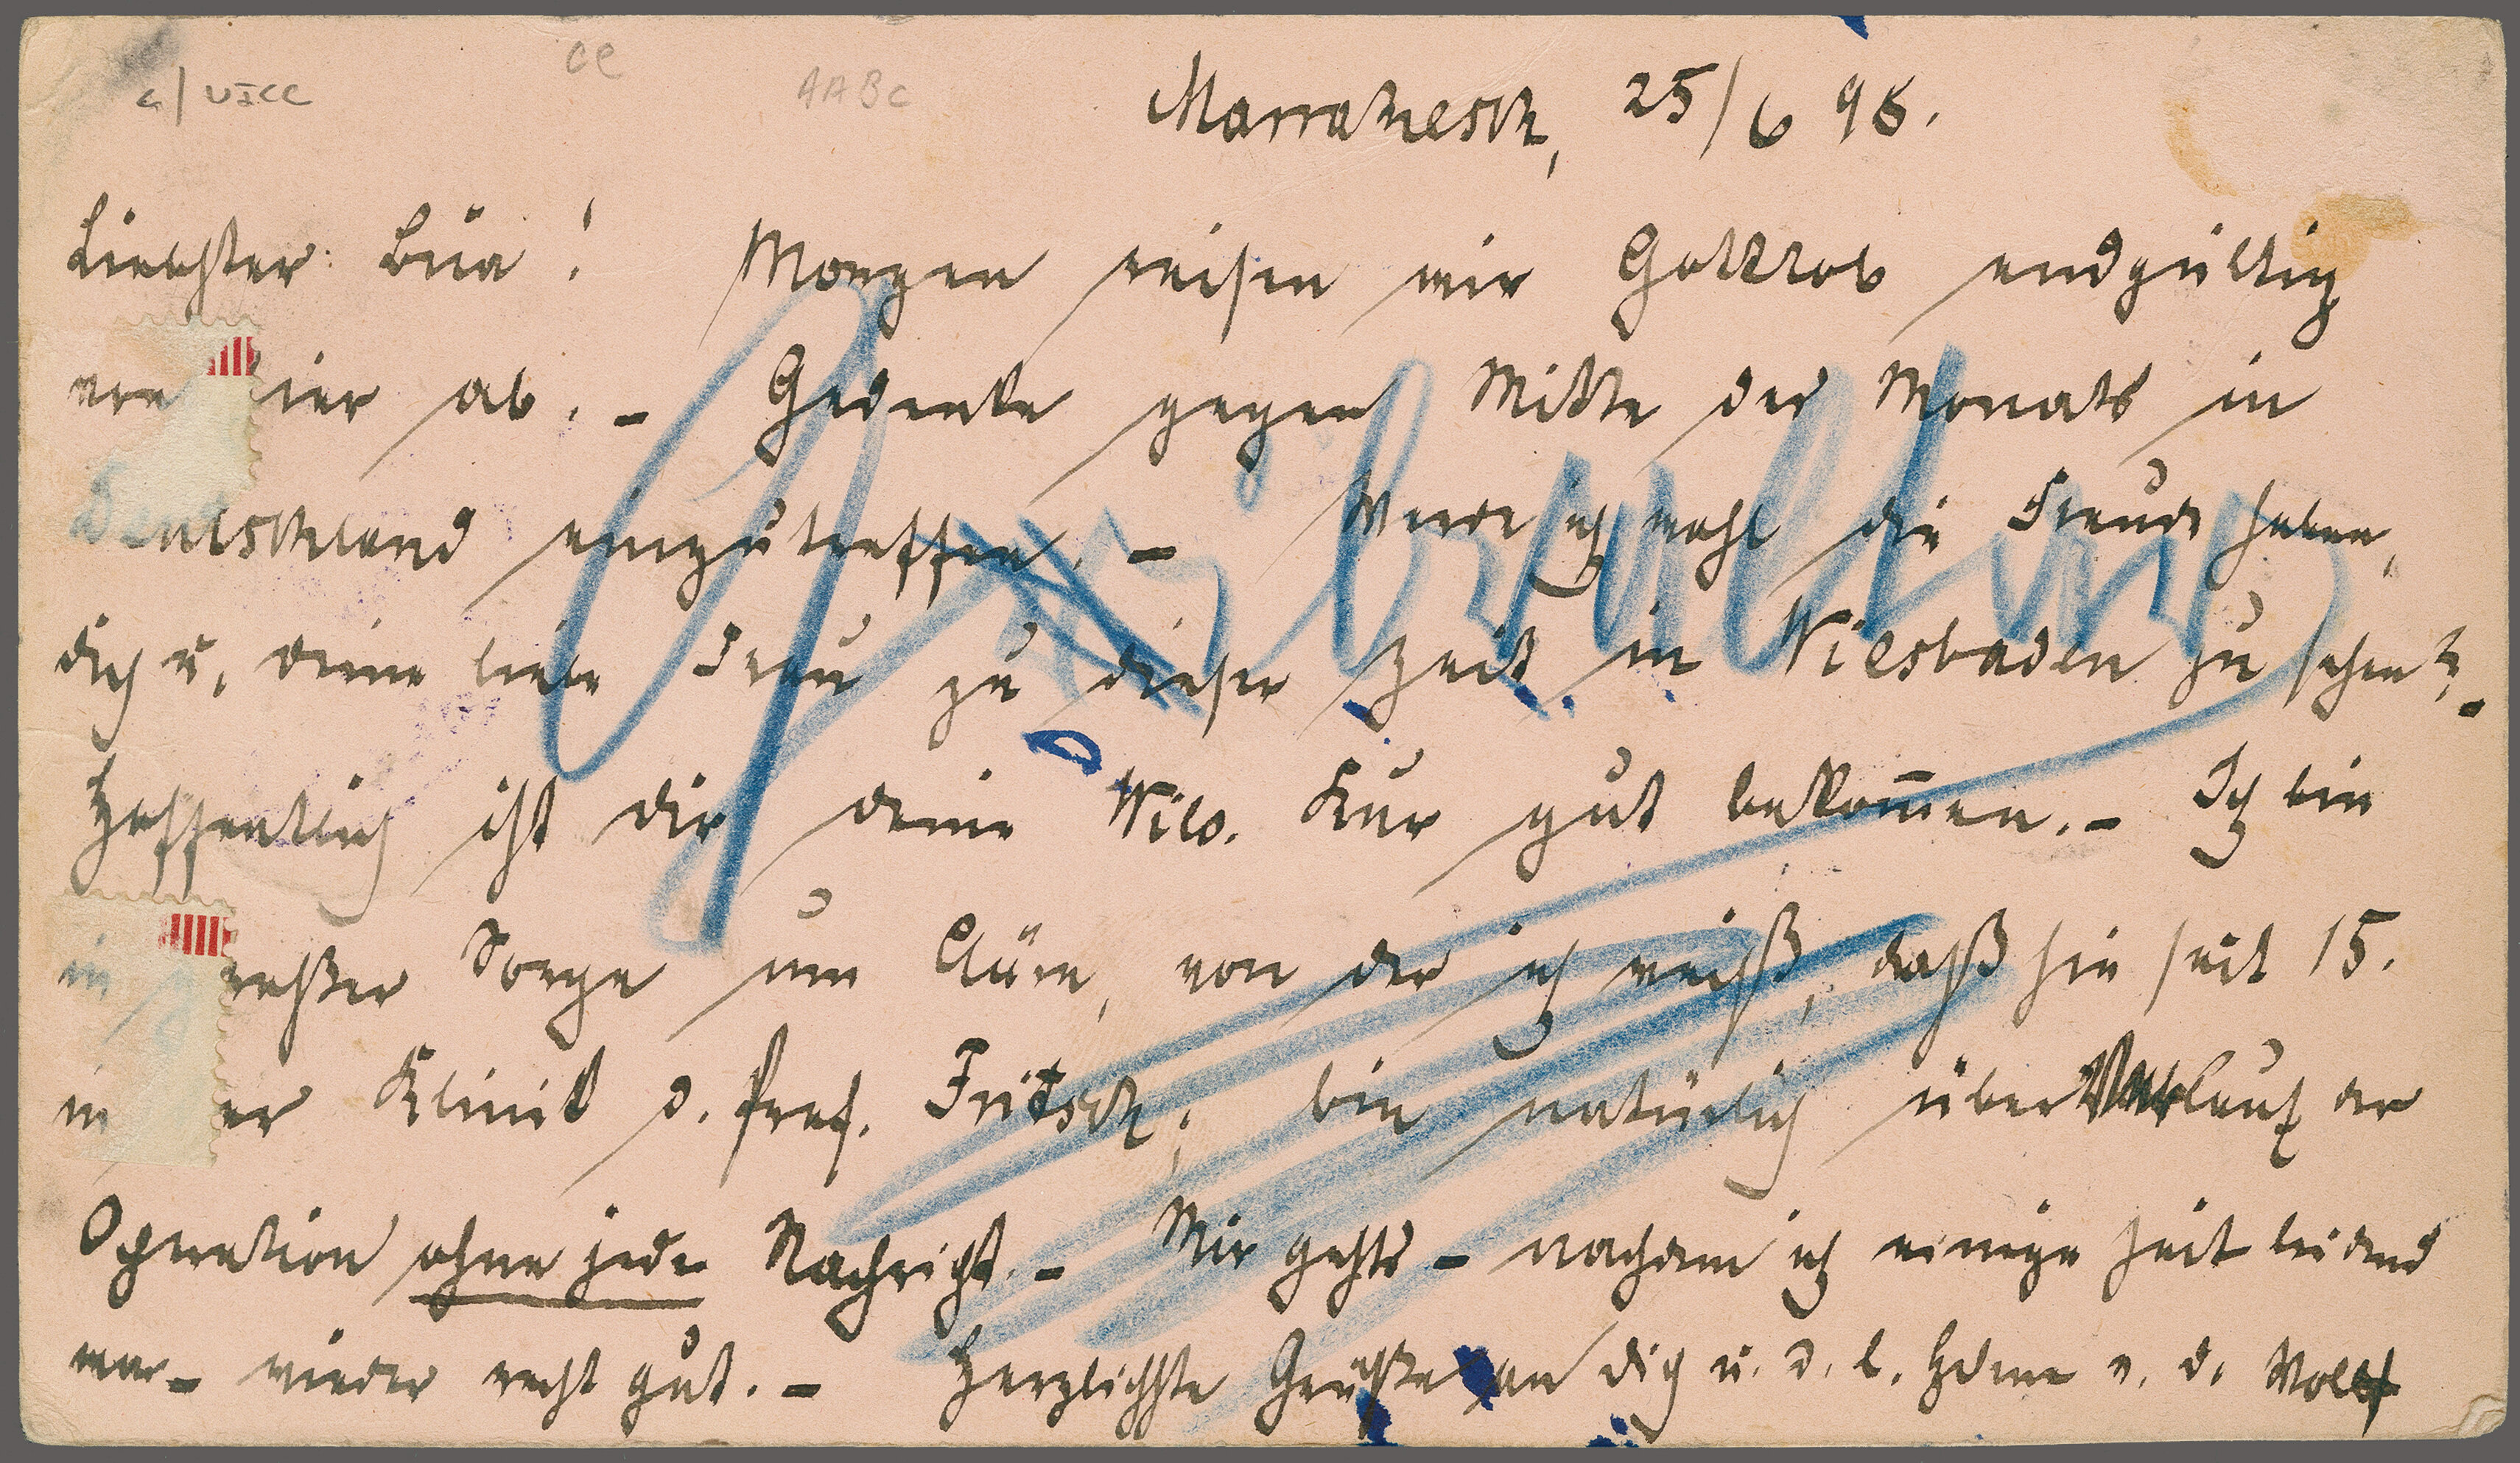 CC
AABC
Marrakesch, 25/6 98.
Liebster Bua! Morgen reisen wir Gottlob endgültig
von hier ab. – Gedenke gegen Mitte des Monats in
Deutschland einzutreffen. – Werde ich wohl die Freude haben,
dich u. deine liebe Frau zu dieser Zeit in Wiesbaden zu sehen? –
Hoffentlich ist dir deine Kur gut bekom̄en. – Ich bin
in großer Sorge um, von der ich weiß, daß sie seit 15.
in der Klinik d. Prof. Fritsch; bin natürlich über Verlauf der
Operation ohne jede Nachricht. – Mir gehts – nachdem ich einige Zeit leidend
war – wieder recht gut. – Herzlichste Grüße an dich u. d. l. v. d.